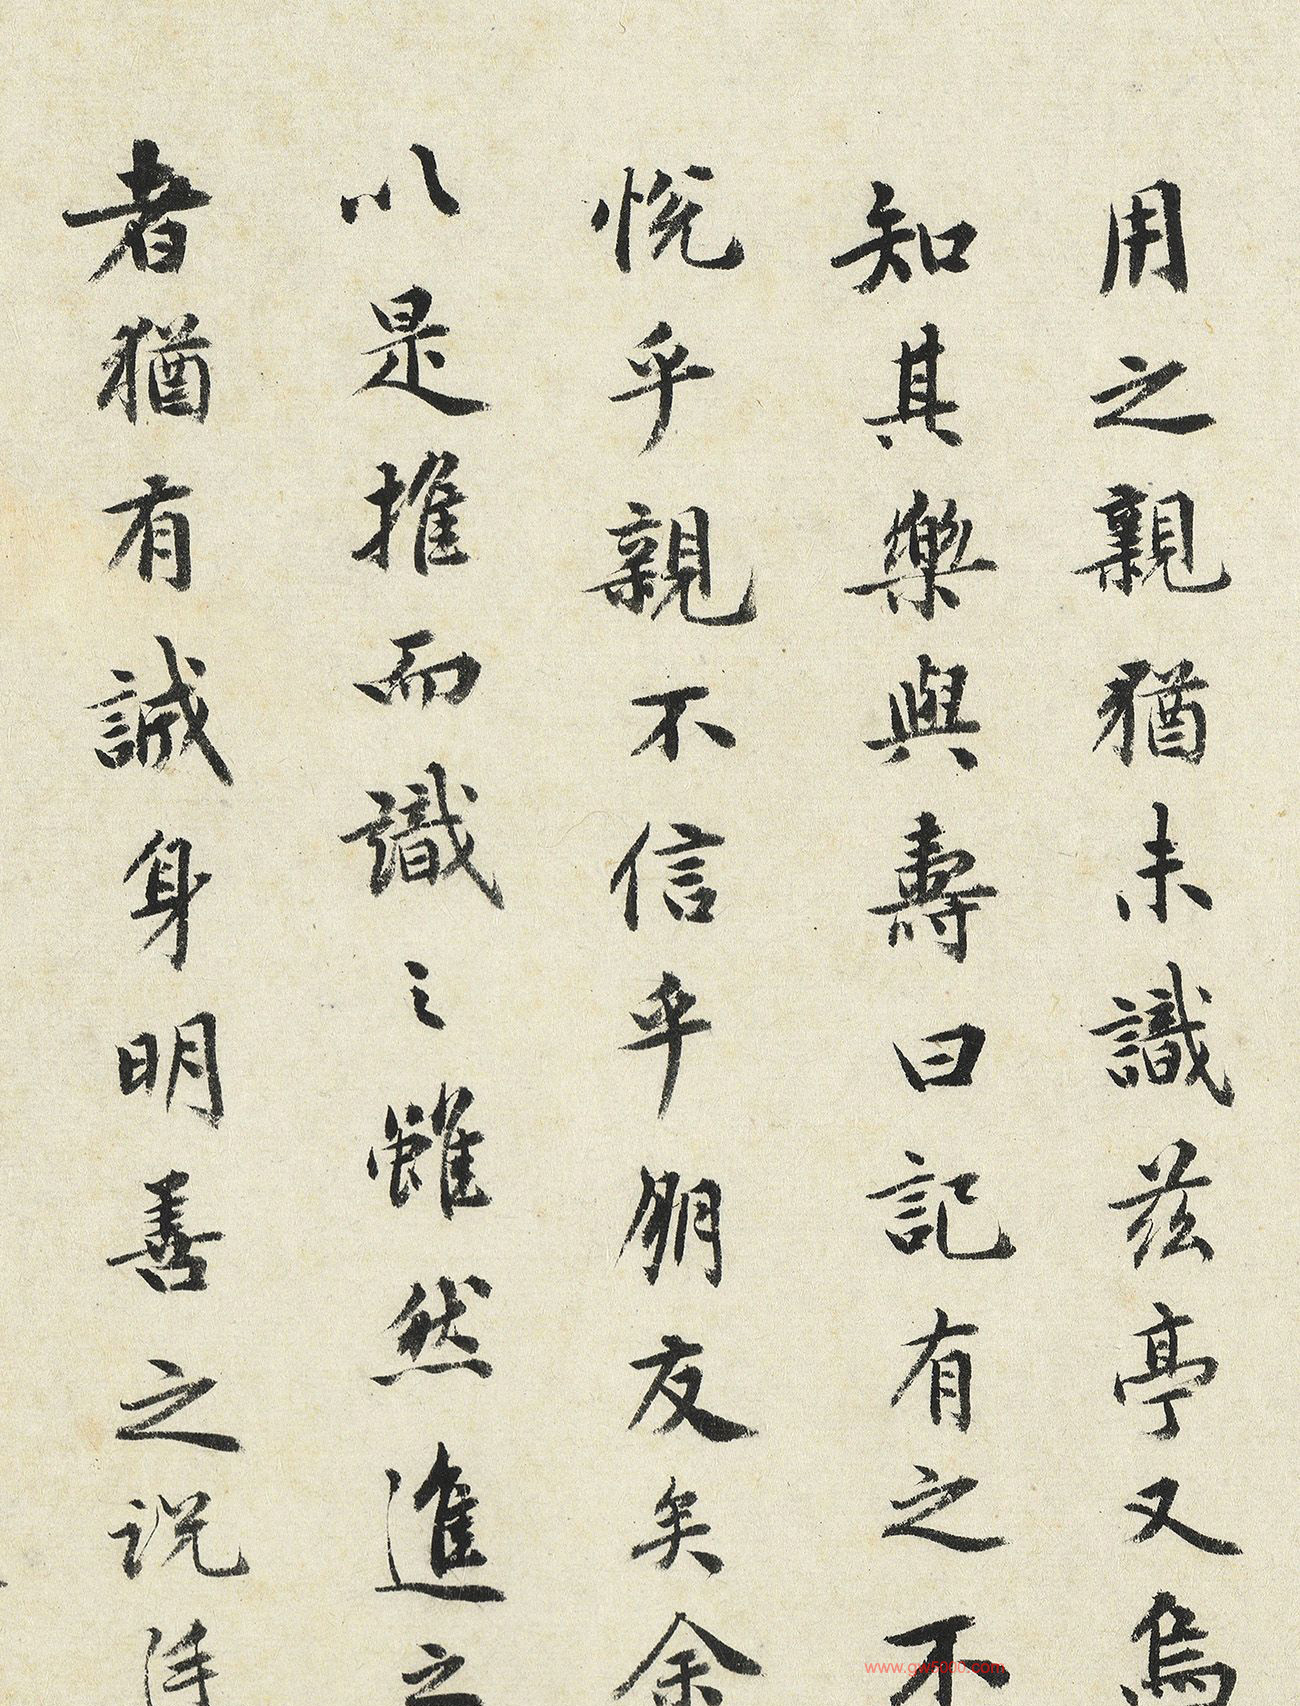 用之親猶未識茲亭又烏
知其樂與壽曰記有之不
悅乎親不信乎朋友矣余
以是推而識之雖然進之
者猶有誠身明善之说
www.gw5000.com